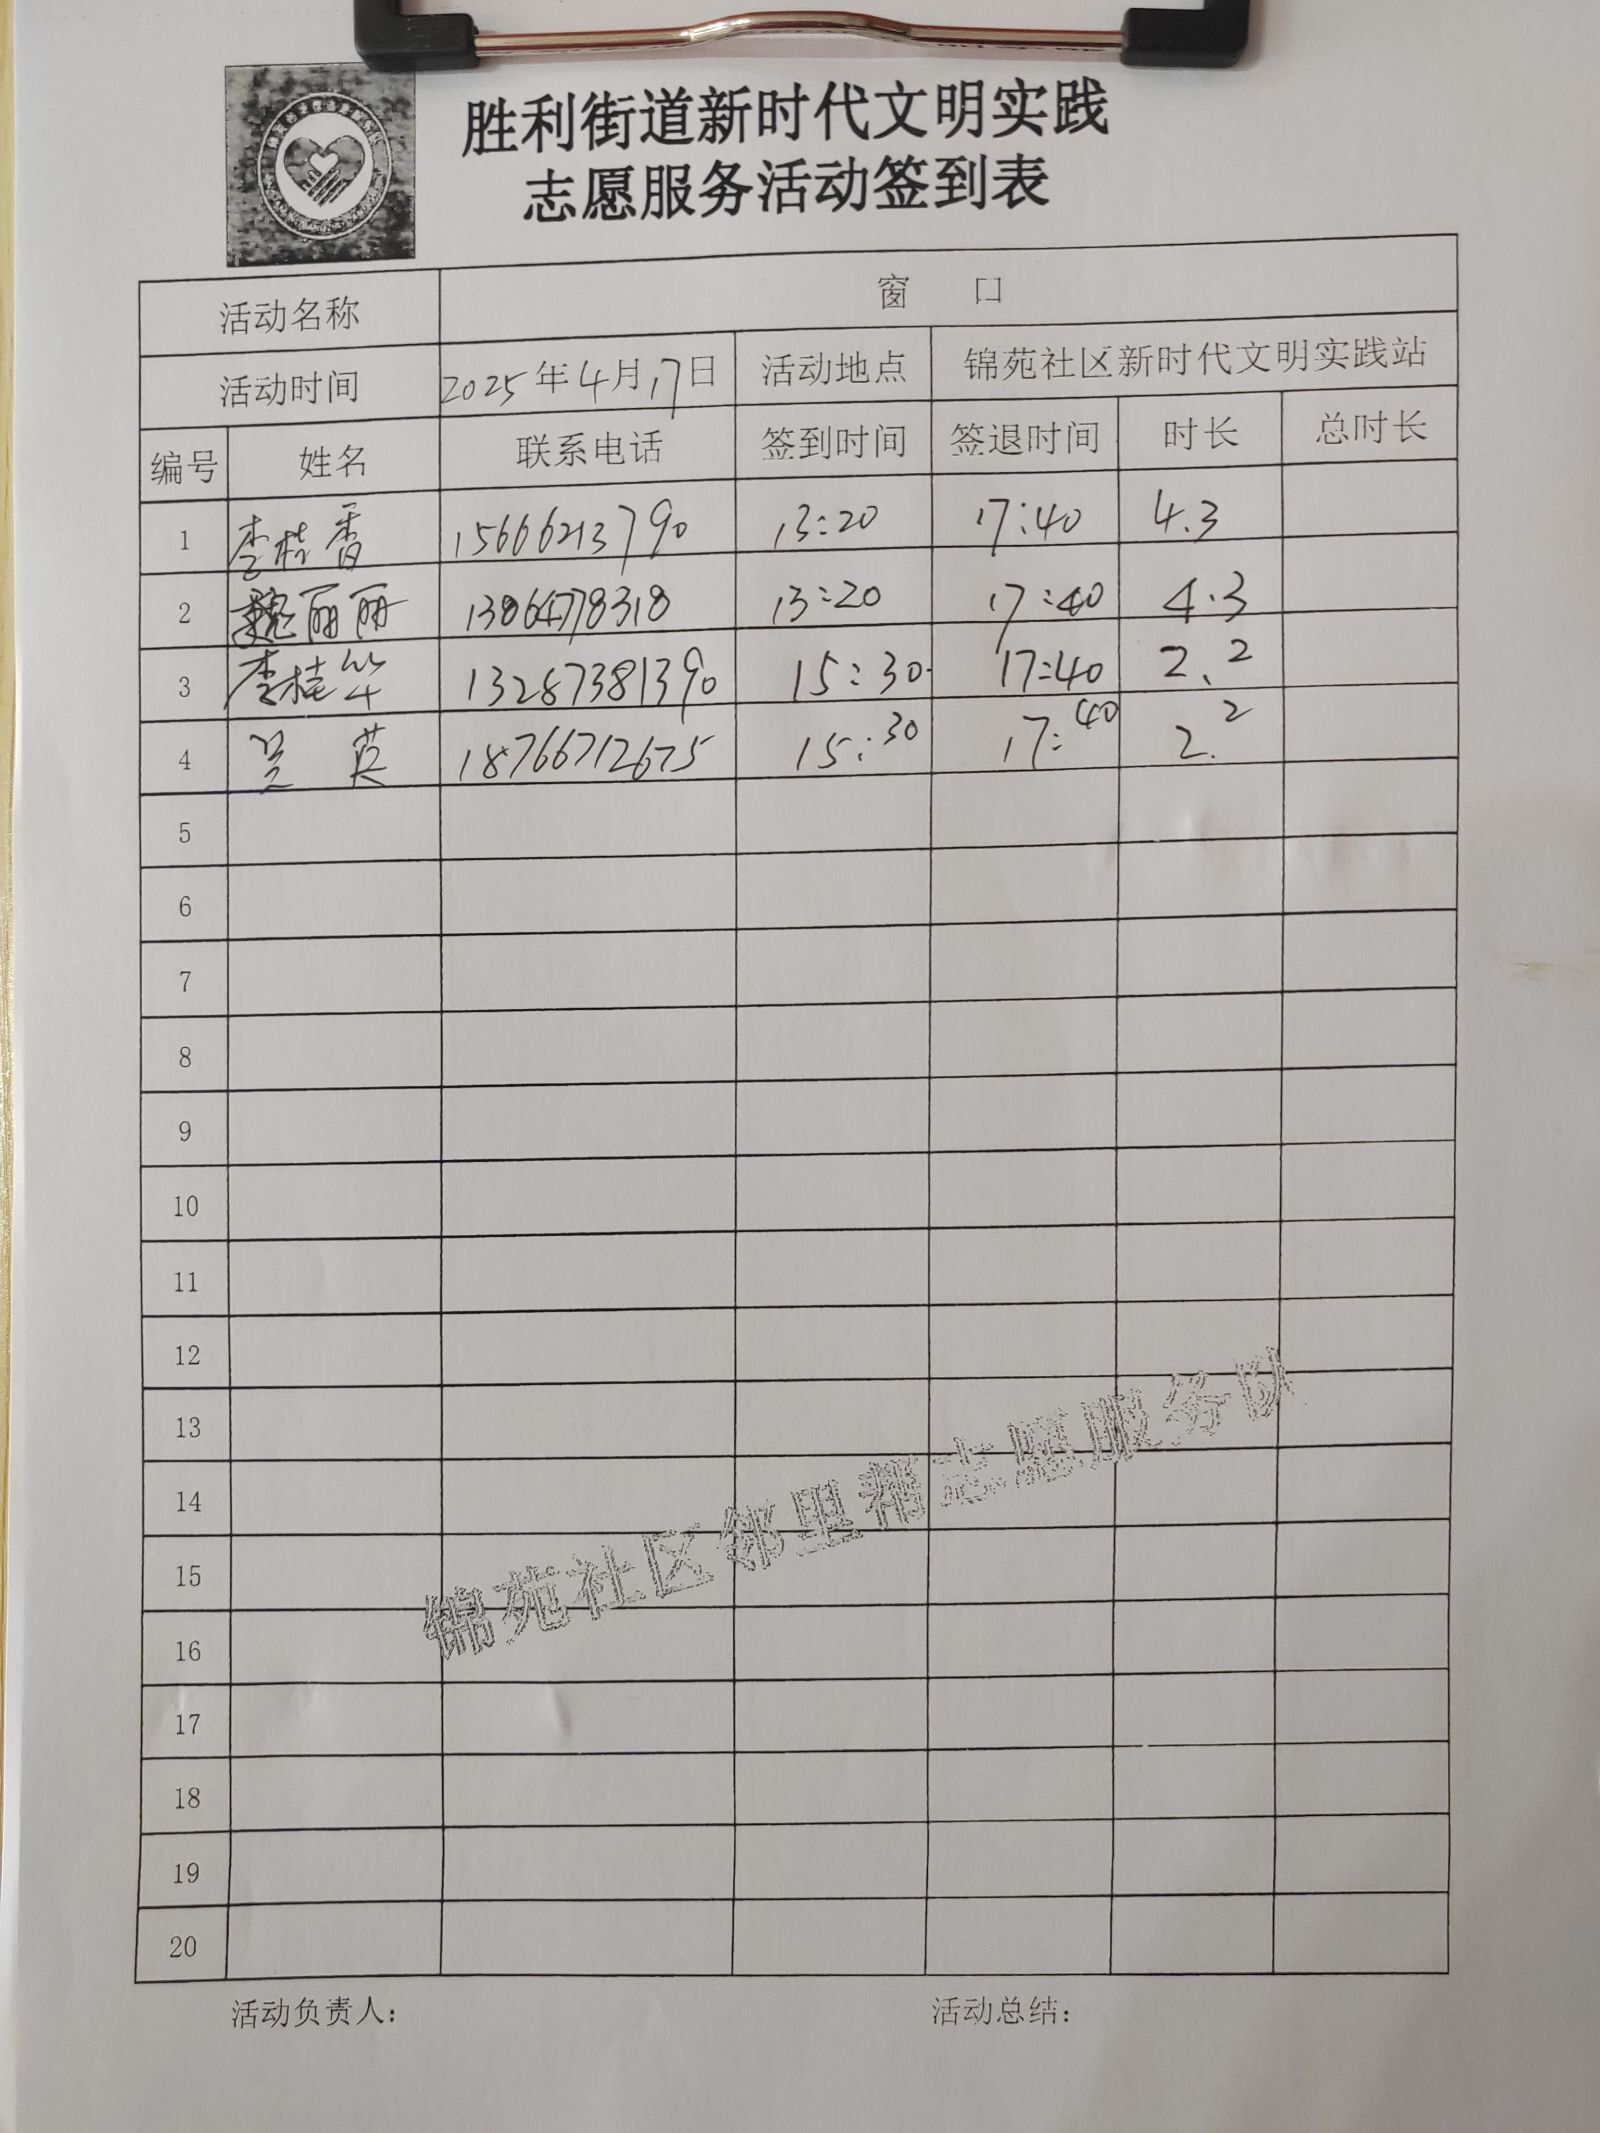 胜利街道新时代文明实践
志愿服务活动签到表
活动名称 窗 口
活动时间 2025年4月17日 活动地点 锦苑社区新时代文明实践站
编号 姓名 联系电话 签到时间 签退时间 时长 总时长
1 李桂香 15666213790 13:20 17:40 4.3
2 魏丽丽 13864778318 13:20 17:40 4.3
3 李桂 13287381390 15:30 17:40 2.2
4 兰英 18766712675 15:30 17:40 2.2
5
6
7
8
9
10
11
12
13
14
15
16
17
18
19
20
锦苑社区邻里帮志愿服务队
活动负责人: 活动总结: